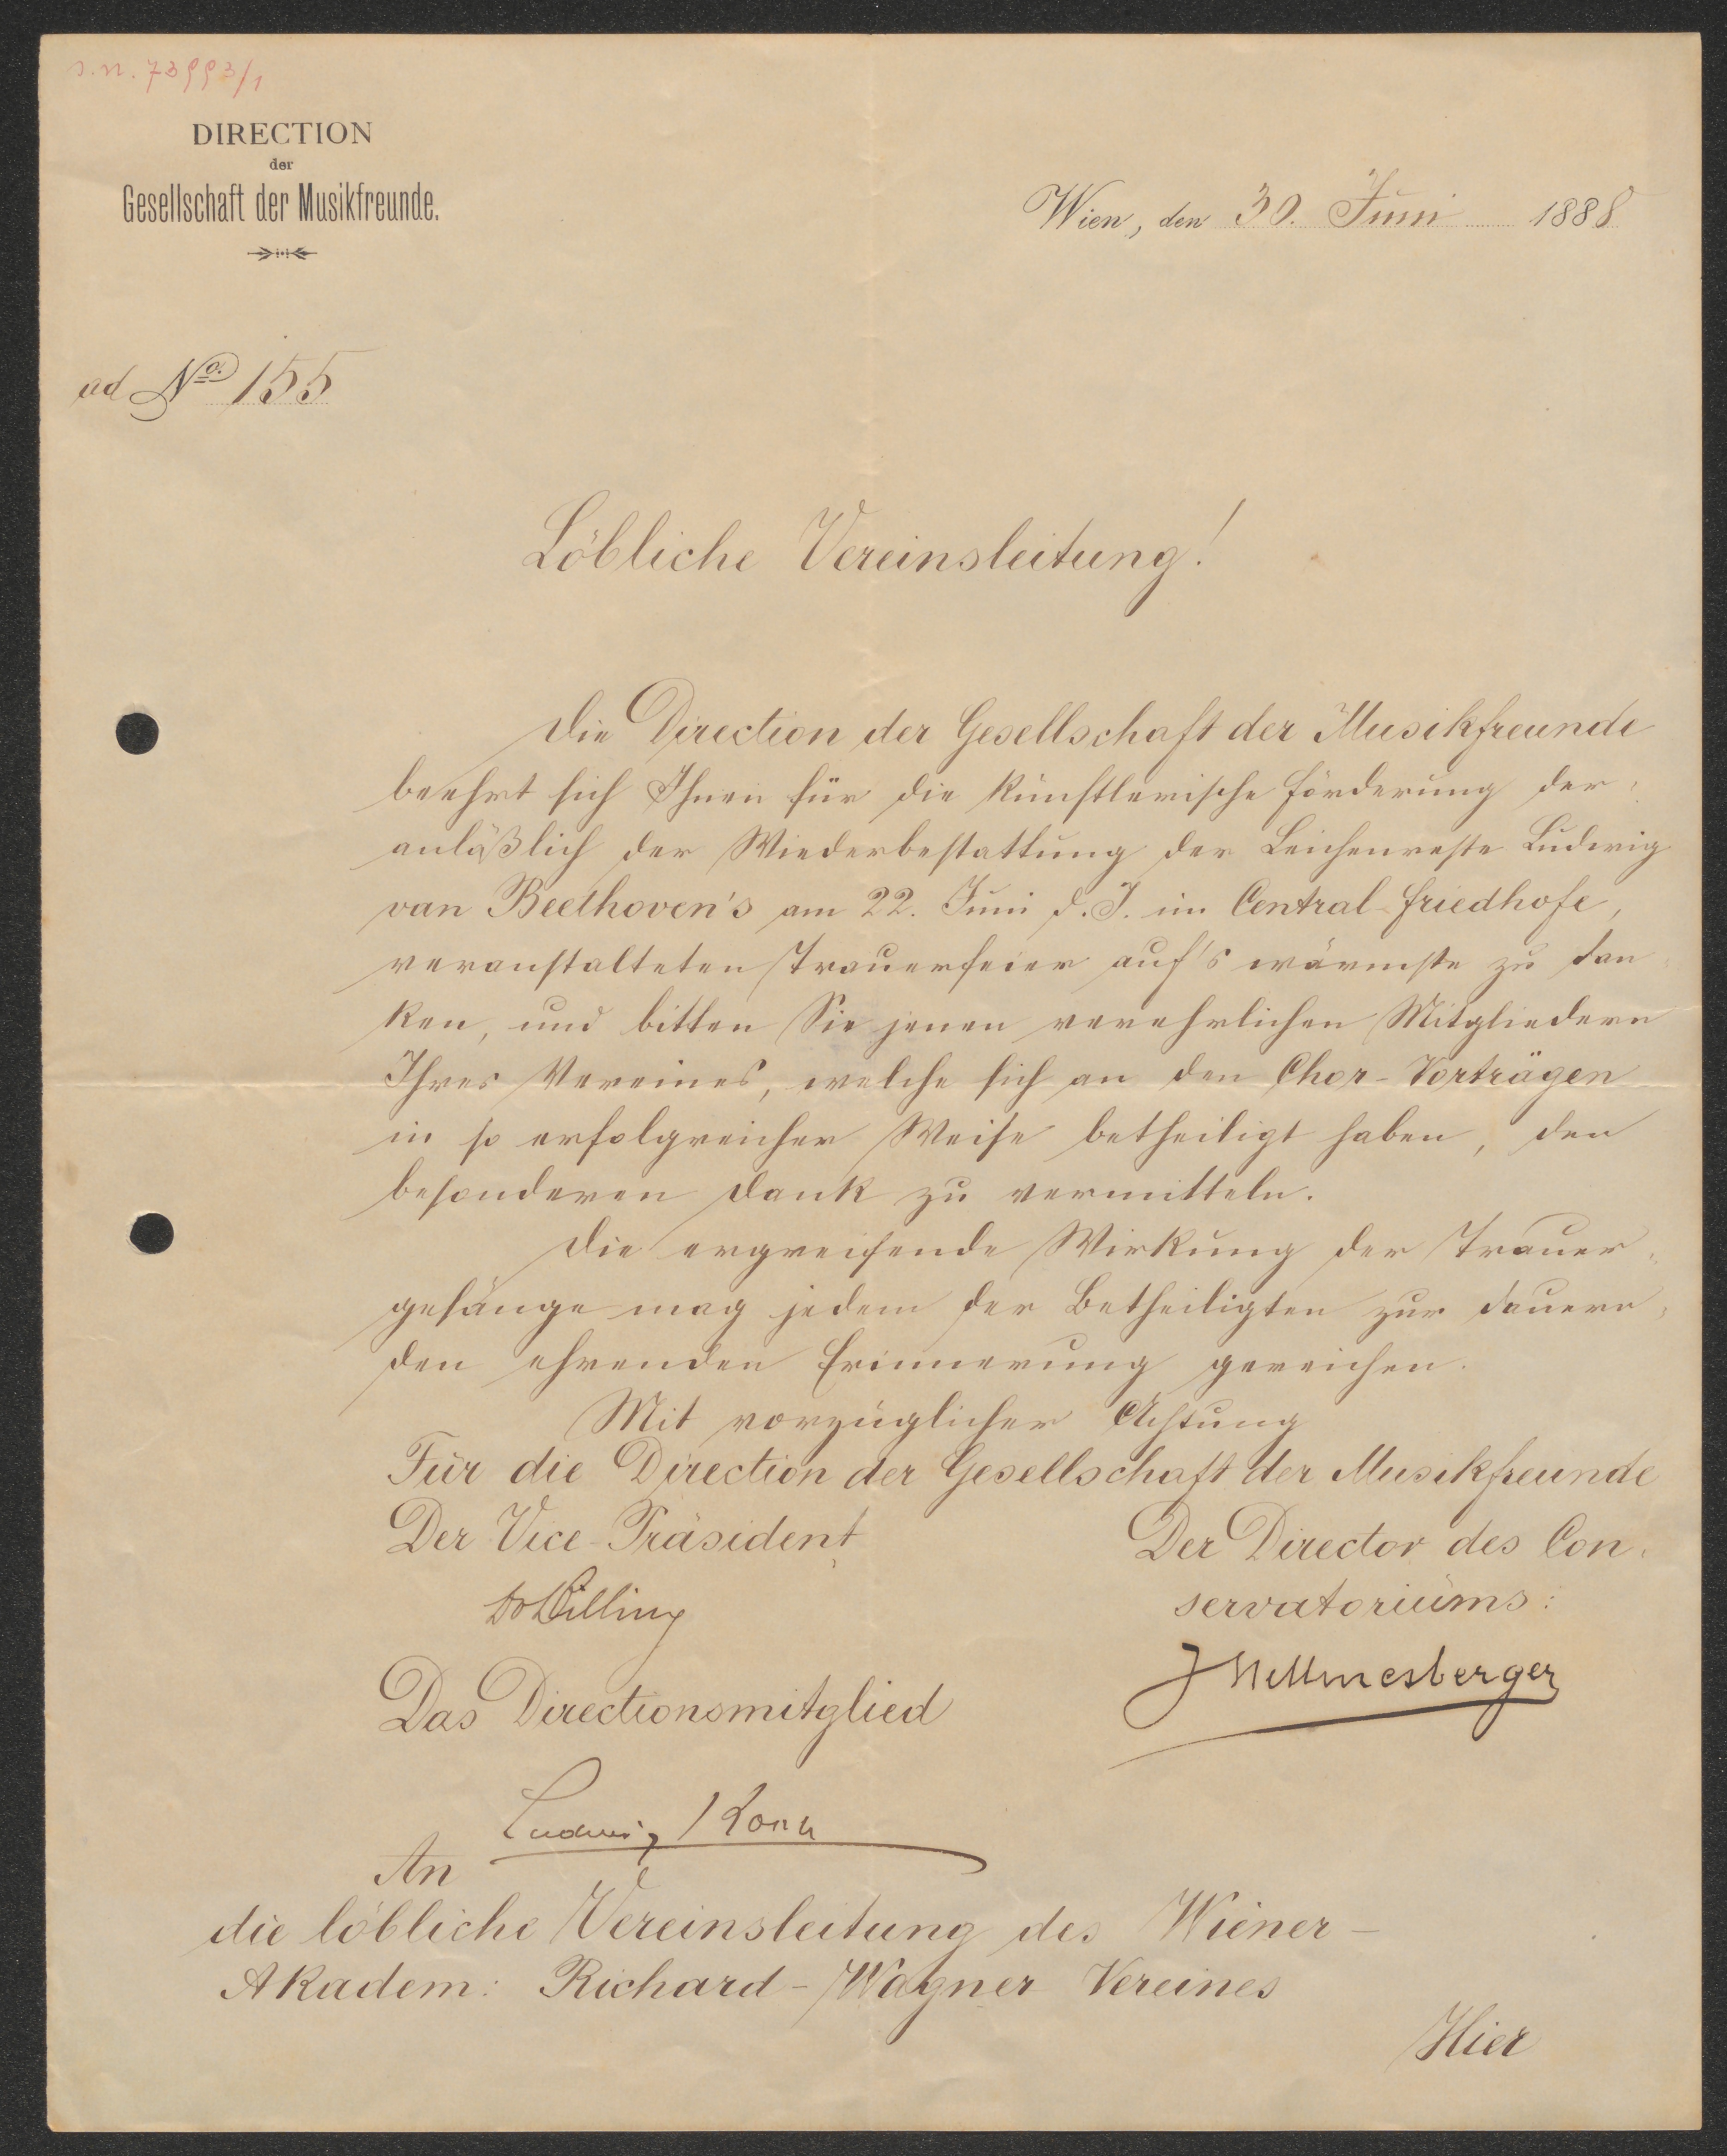 s.n. 73993/1
DIRECTION
der
Gesellschaft der Musikfreunde.
Wien, den 30. Juni 1888
ad No. 155
Löbliche Vereinsleitung!
Die Direction der Gesellschaft der Musikfreunde
beehrt sich Ihnen für die künstlerische Förderung der
anläßlich der Wiederbestattung der Leichenreste Ludwig
van Beethoven's am 22. Juni d. J. im Central-Friedhofe,
veranstalteten Trauerfeier auf's wärmste zu dan-
ken, und bitten Sie jenen verehrlichen Mitgliedern
Ihres Vereines, welche sich an den Chor-Vorträgen
in so erfolgreicher Weise betheiligt haben, den
besonderen Dank zu vermitteln.
Die ergreifende Wirkung der Trauer-
gesänge mag jedem der Betheiligten zur dauern-
den ehrenden Erinnerung gereichen.
Mit vorzüglicher Achtung
Für die Direction der Gesellschaft der Musikfreunde
Der Vice-Präsident
Der Director des Con-
servatoriums:
Dr Billing
J Hellmesberger
Das Directionsmitglied
Ludwig Koch
An
die löbliche Vereinsleitung des Wiener-
Akadem: Richard-Wagner Vereines
Hier